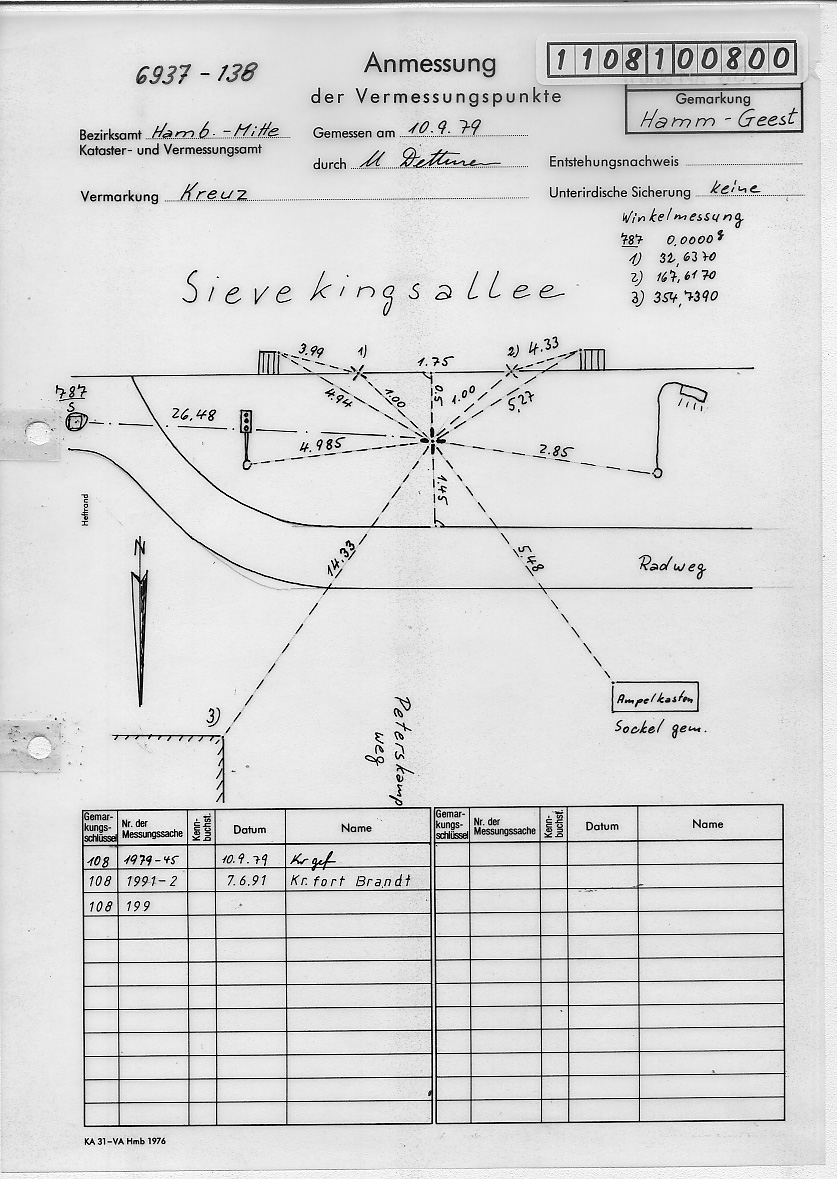 6937 - 138
Anmessung
der Vermessungspunkte
11 08 1 00800
Gemarkung
Hamm - Geest
Bezirksamt Hamb.-Mitte
Kataster- und Vermessungsamt
Gemessen am 10.9.79
durch
Entstehungsnachweis
Vermarkung Kreuz
Unterirdische Sicherung keine
Winkelmessung
787 0.0000g
1) 32,6370
2) 167,6170
3) 354,7390
Sievekingsallee
3.99
1)
1.75
2) 4.33
787
S
4.94
1.00
0.5
1.00
5,27
26,48
4.985
2.85
1.45
Heftrand
N
14.33
5.48
Radweg
3)
Ampelkasten
Sockel gem.
Peterskamp
weg
Gemar-
kungs-
schlüssel
Nr. der
Messungssache
Kenn-
buchst.
Datum
Name
Gemar-
kungs-
schlüssel
Nr. der
Messungssache
Kenn-
buchst.
Datum
Name
108 1979-45 10.9.79 Kr gef
108 1991-2 7.6.91 Kr. fort Brandt
108 199
KA 31-VA Hmb 1976